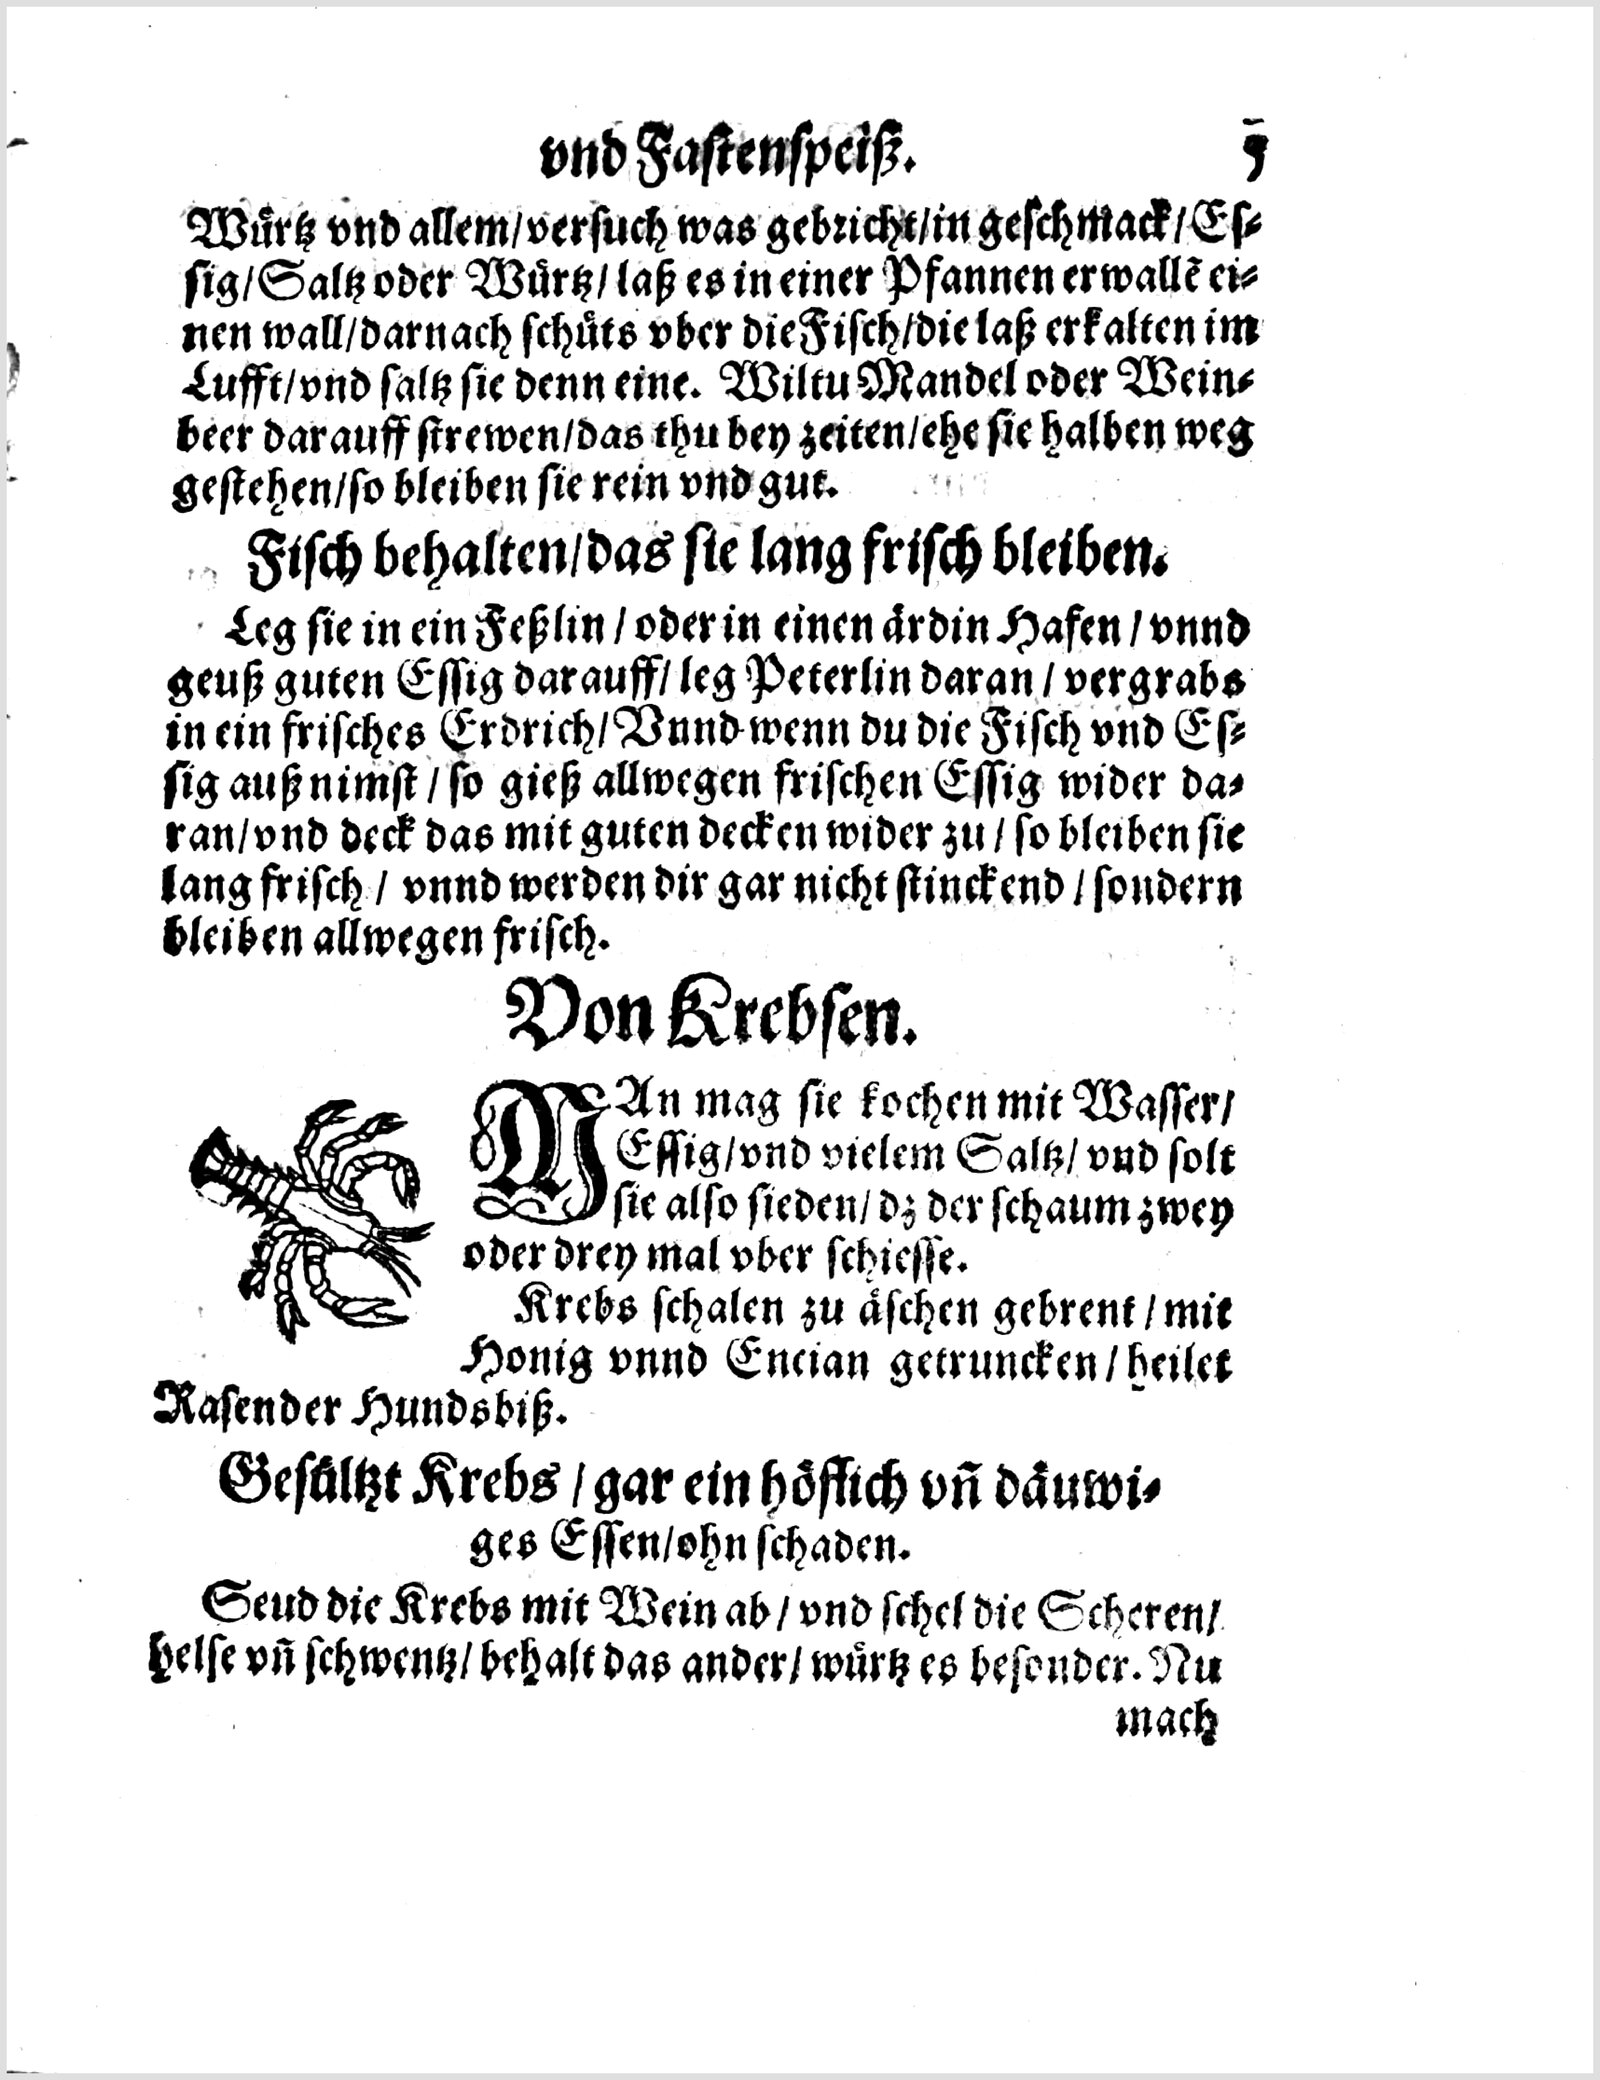 vnd Fastenspeiß. 5
Wuͤrtz vnd allem/versuch was gebricht/in geschmack/Es⸗
sig/Saltz oder Wuͤrtz/laß es in einer Pfannen erwallẽ ei⸗
nen wall/darnach schuͤts vber die Fisch/die laß erkalten im
Lufft/vnd saltz sie denn eine. Wiltu Mandel oder Wein⸗
beer darauff strewen/das thu bey zeiten/ehe sie halben weg
gestehen/so bleiben sie rein vnd gut.
Fisch behalten/das sie lang frisch bleiben.
Leg sie in ein Feßlin/oder in einen aͤrdin Hafen/vnnd
geuß guten Essig darauff/leg Peterlin daran/vergrabs
in ein frisches Erdrich/Vnnd wenn du die Fisch vnd Es⸗
sig außnimst/so gieß allwegen frischen Essig wider da⸗
ran/vnd deck das mit guten decken wider zu/so bleiben sie
lang frisch/vnnd werden dir gar nicht stinckend/sondern
bleiben allwegen frisch.
Von Krebsen.
MAn mag sie kochen mit Wasser/
Essig/vnd vielem Saltz/vnd solt
sie also sieden/dz der schaum zwey
oder drey mal vber schiesse.
Krebs schalen zu aͤschen gebrent/mit
Honig vnnd Encian getruncken/heilet
Rasender Hundsbiß.
Gesuͤltzt Krebs/gar ein hoͤflich vñ daͤuwi⸗
ges Essen/ohn schaden.
Seud die Krebs mit Wein ab/vnd schel die Scheren/
helse vñ schwentz/behalt das ander/wuͤrtz es besonder. Nu
mach